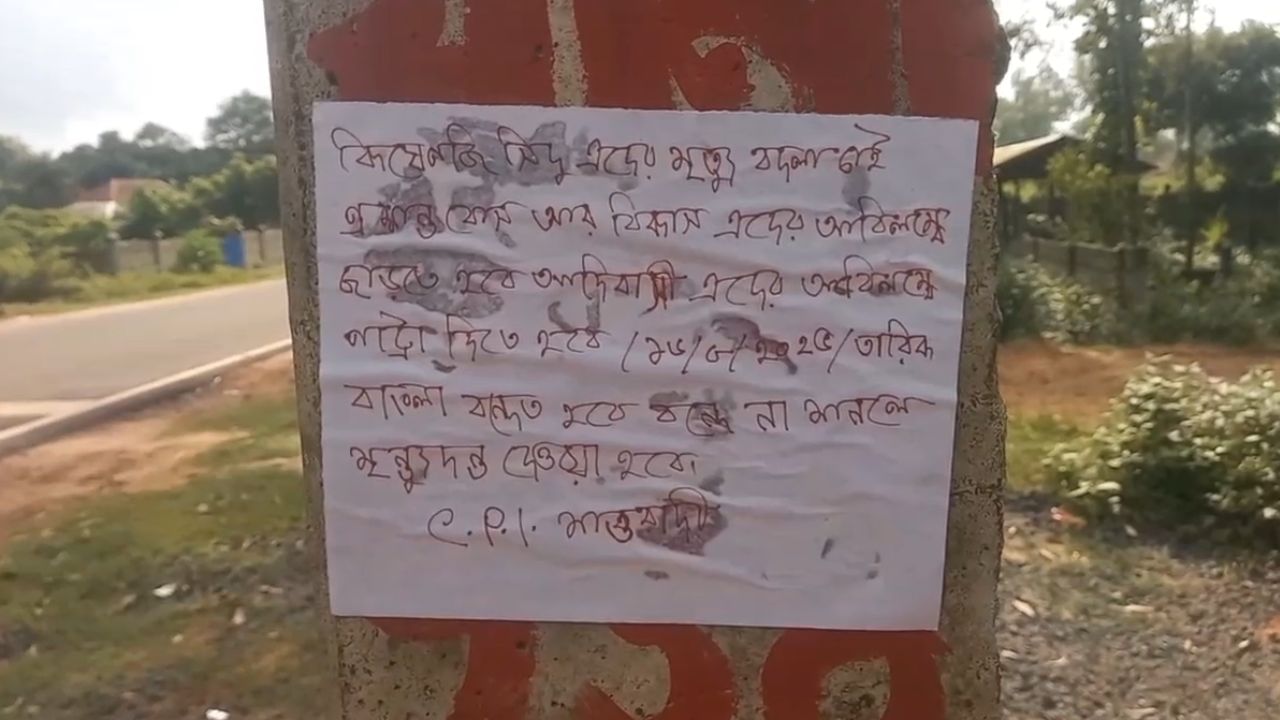 কিষেনজি সিদু এদের মৃত্যু বদলা চাই
প্রশান্ত বোস আর বিকাস এদের অবিলম্বে
ছাড়তে হবে আদিবাসী এদের অবিলম্বে
পাট্টা দিতে হবে /১৫/৮/২০২৫/তারিক
বাংলা বন্দেত হবে বন্দে না মানলে
মৃত্যুদন্ড দেওয়া হবে।
C.P.I. মাওবাদী